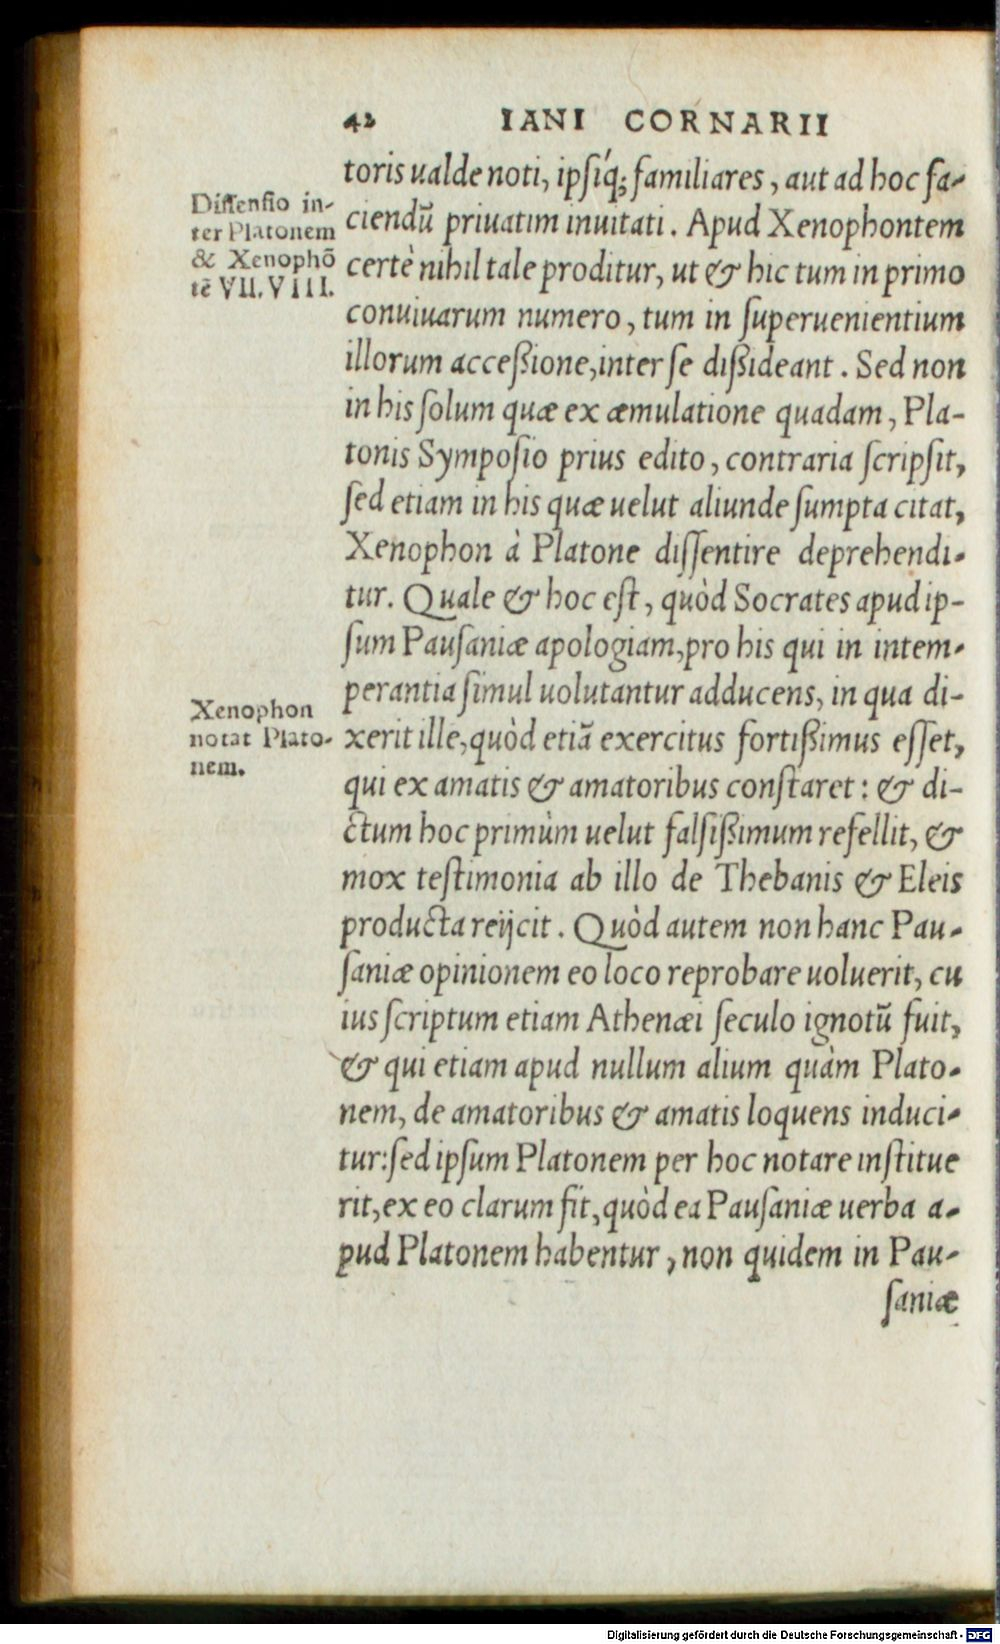 42 IANI CORNARII
toris ualde noti, ipsíq; familiares, aut ad hoc fa-
ciendũ priuatim inuitati. Apud Xenophontem
certè nihil tale proditur, ut & hic tum in primo
conuiuarum numero, tum in superuenientium
illorum acceßione, inter se dißideant. Sed non
in his solum quæ ex æmulatione quadam, Pla-
tonis Symposio prius edito, contraria scripsit,
sed etiam in his quæ uelut aliunde sumpta citat,
Xenophon à Platone dissentire deprehendi-
tur. Quale & hoc est, quòd Socrates apud ip-
sum Pausaniæ apologiam, pro his qui in intem-
perantia simul uolutantur adducens, in qua di-
xerit ille, quòd etiã exercitus fortißimus esset,
qui ex amatis & amatoribus constaret: & di-
ctum hoc primùm uelut falsißimum refellit, &
mox testimonia ab illo de Thebanis & Eleis
producta reijcit. Quòd autem non hanc Pau-
saniæ opinionem eo loco reprobare uoluerit, cu
ius scriptum etiam Athenæi seculo ignotũ fuit,
& qui etiam apud nullum alium quàm Plato-
nem, de amatoribus & amatis loquens induci-
tur: sed ipsum Platonem per hoc notare institue
rit, ex eo clarum fit, quòd ea Pausaniæ uerba a-
pud Platonem habentur, non quidem in Pau-
saniæ
Dissensio in-
ter Platonem
& Xenophõ
tẽ VII. VIII.
Xenophon
notat Plato-
nem.
Digitalisierung gefördert durch die Deutsche Forschungsgemeinschaft - DFG